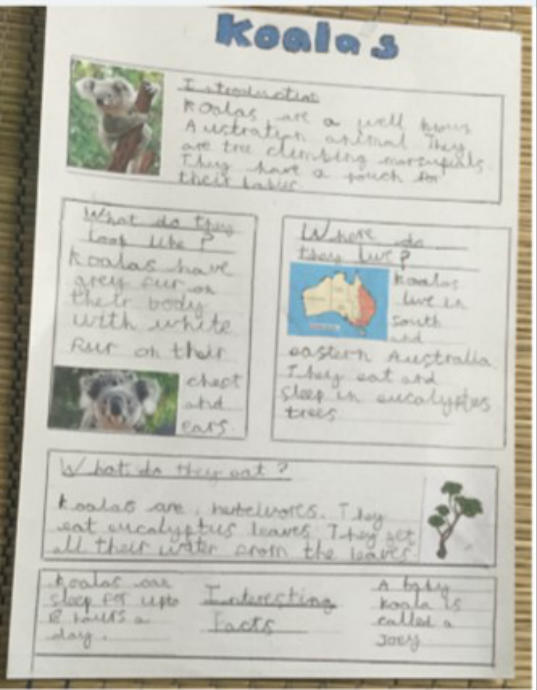 Koalas
Introduction
Koalas are a well known
Australian animal. They
are tree climbing marsupials.
They have a pouch for
their babies
What do they
look like?
Koalas have
grey fur on
their body
with white
fur on their
chest
and
ears.
Where do
they live?
Koalas
live in
south
and
eastern Australia
They eat and
sleep in eucalyptus
trees
What do they eat?
Koalas are herbivores. They
eat eucalyptus leaves. They get
all their water from the leaves
Koalas can
sleep for upto
hours a
day.
Interesting
Facts
A baby
koala is
called a
joey